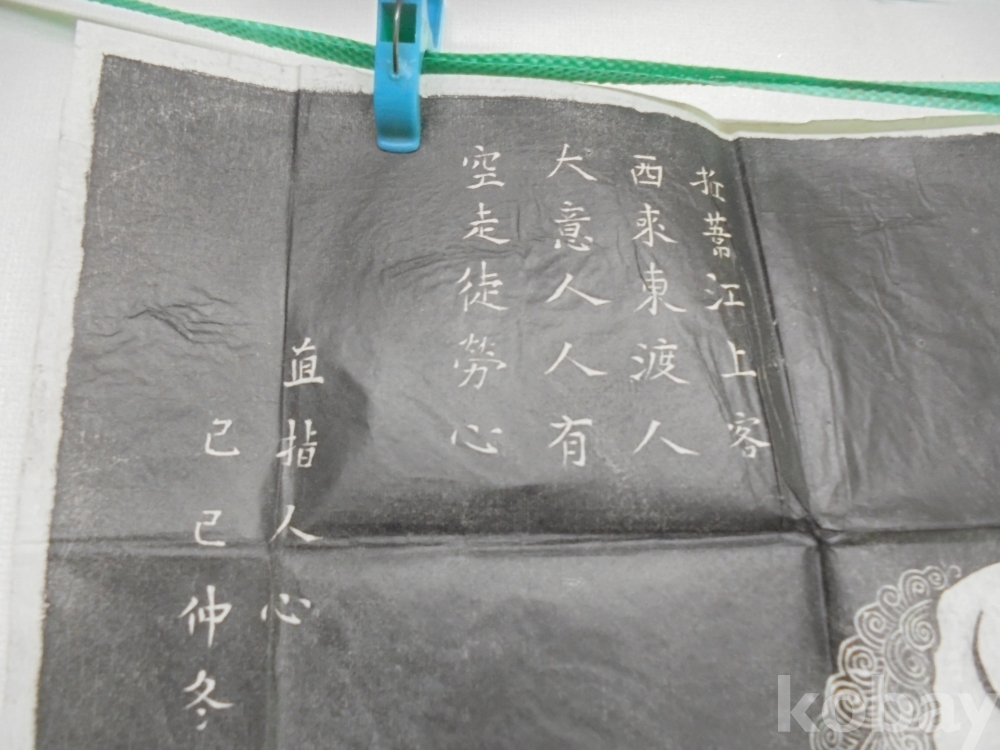 江上客
西來東渡人
大意人人有
空走徒勞心
直指人心
己巳仲冬
kobay